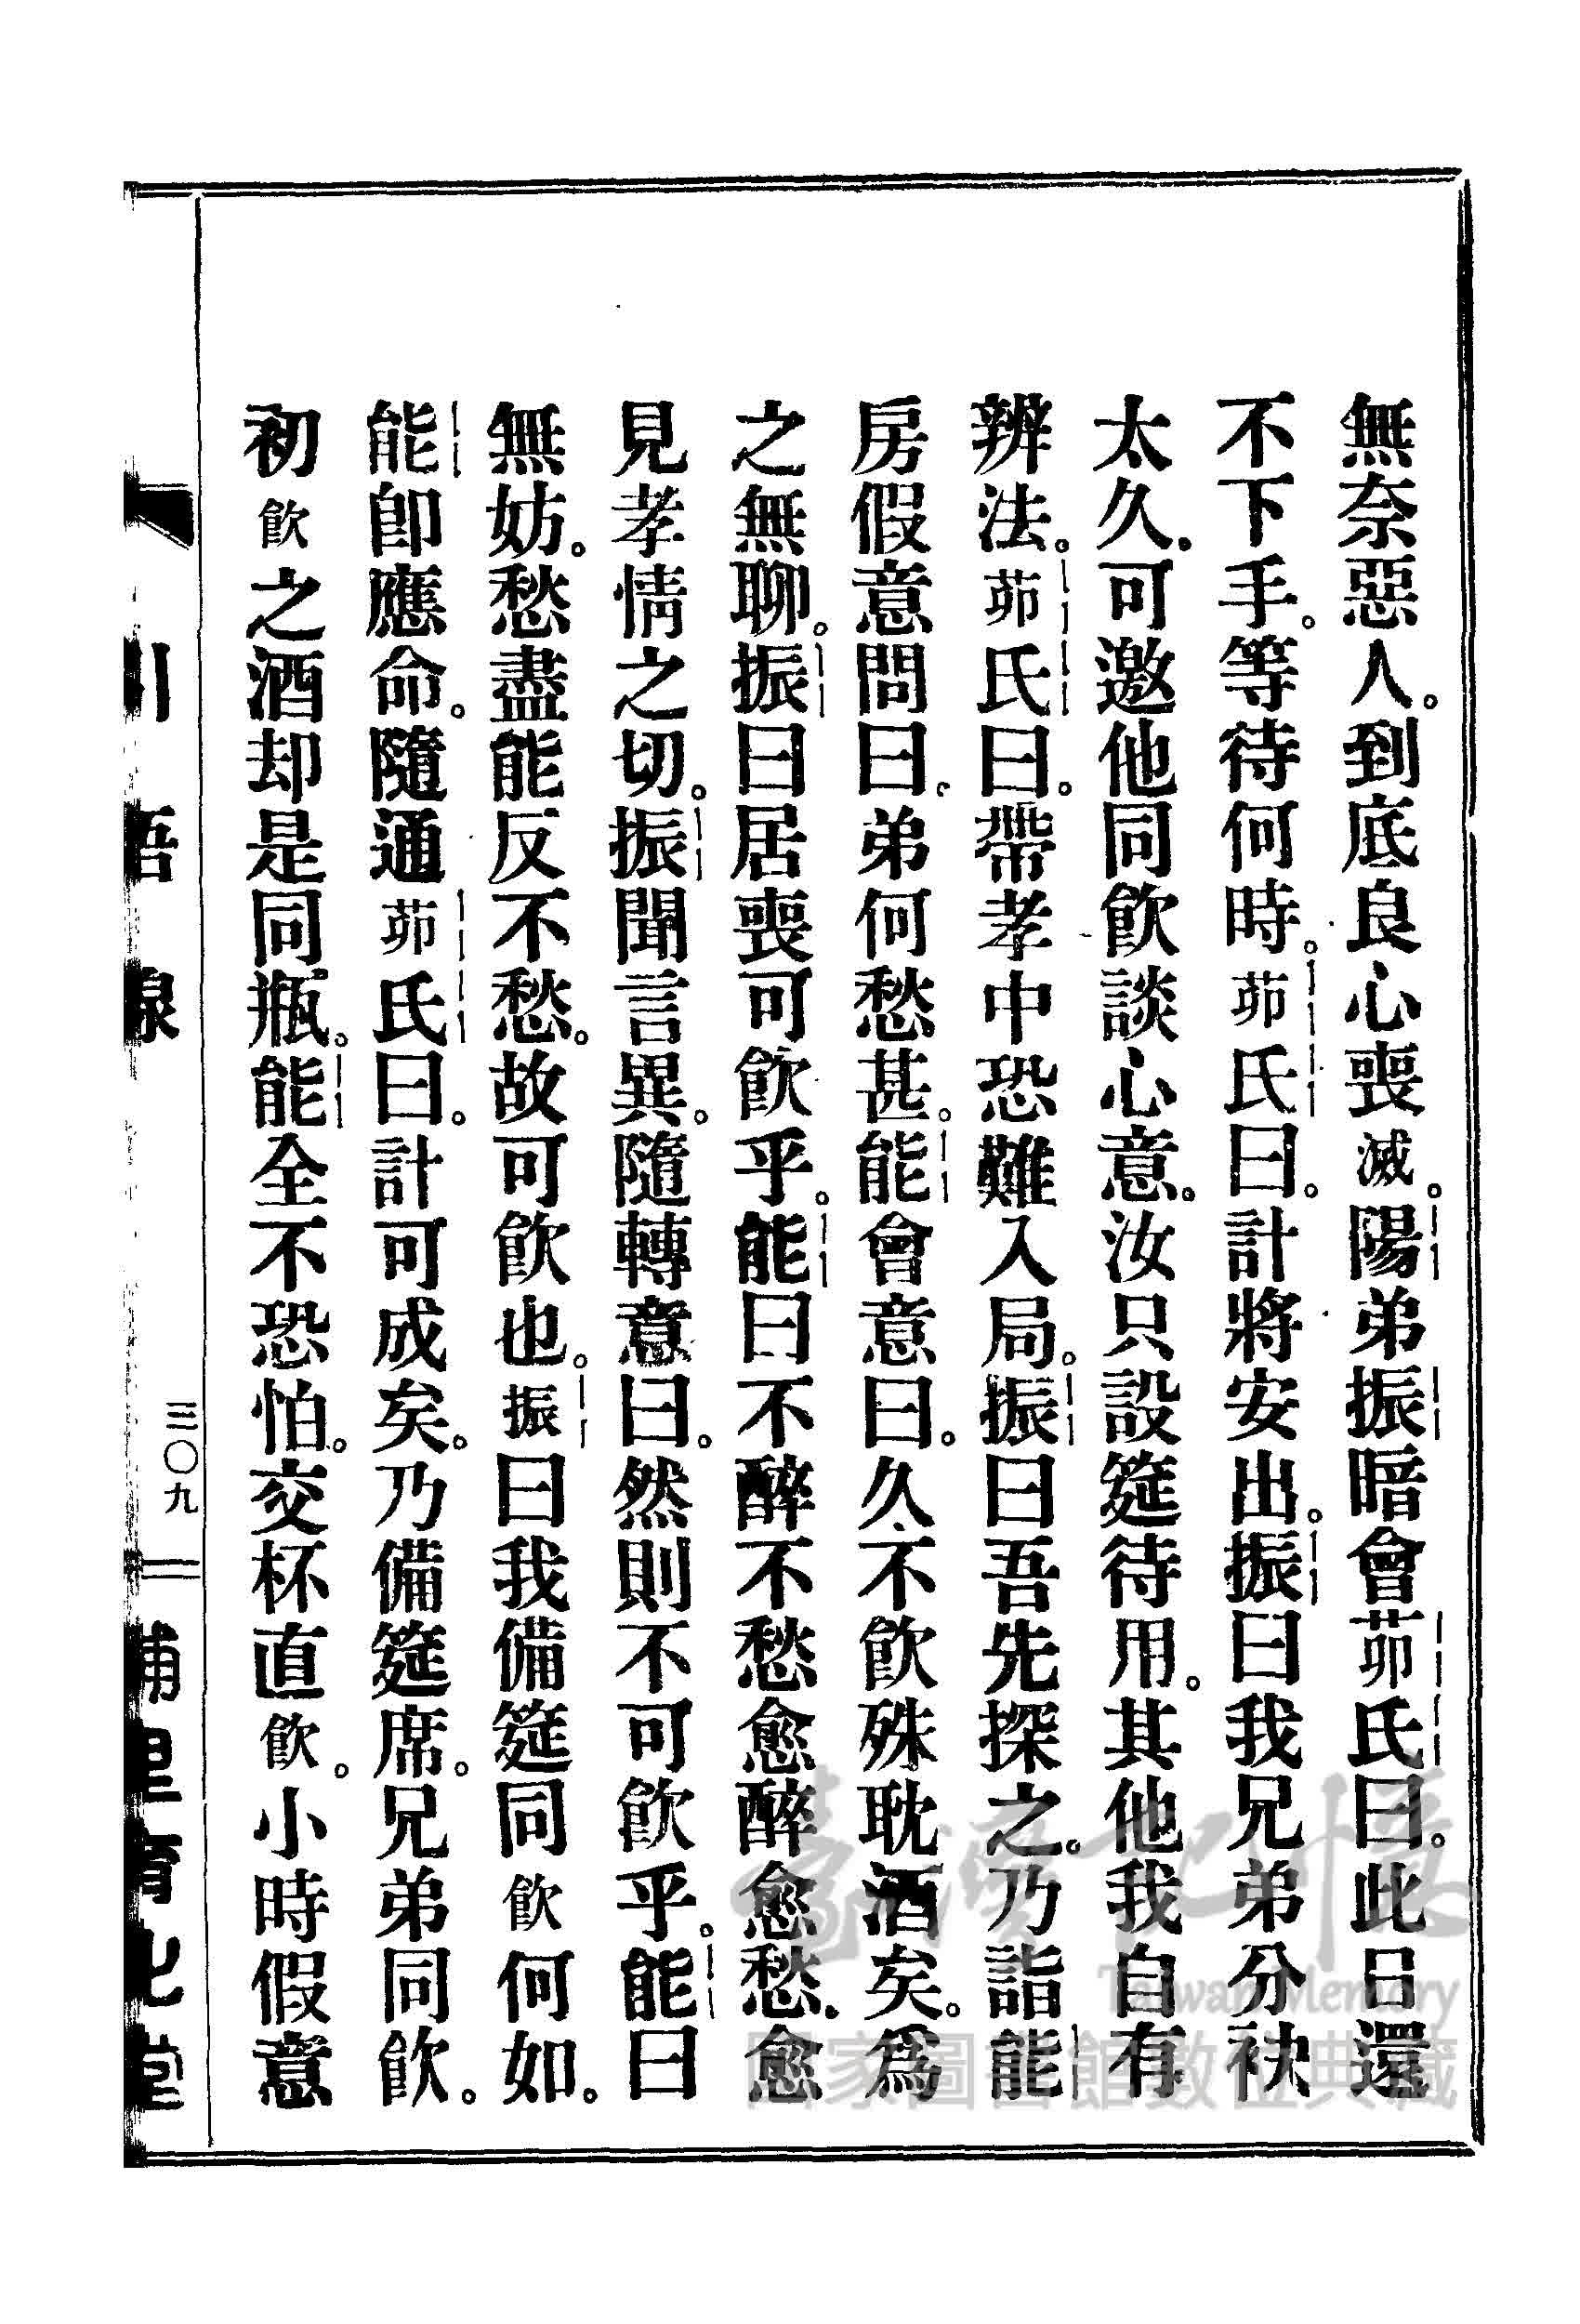 無奈惡人。到底良心喪滅。陽弟振暗會茆氏曰。此日還
不下手。等待何時。茆氏曰。計將安出。振曰我兄弟分袂
太久。可邀他同飮談心意。汝只設筵待用。其他我自有
辨法。茆氏曰。帶孝中恐難入局。振曰吾先探之。乃詣能
房假意問曰。弟何愁甚。能會意曰。久不飮殊耽酒矣。爲
之無聊。振曰居喪可飮乎。能曰不醉不愁愈醉愈愁。愈
見孝情之切。振聞言異。隨轉意曰。然則不可飮乎。能曰
無妨。愁盡能反不愁。故可飮也。振曰我備筵同飮何如。
能卽應命。隨通茆氏曰。計可成矣。乃備筵席。兄弟同飮。
初飮之酒却是同瓶。能全不恐怕。交杯直飮。小時假意
三〇九
埔里育化堂
臺灣記憶
Taiwan Memory
國家圖書館數位典藏